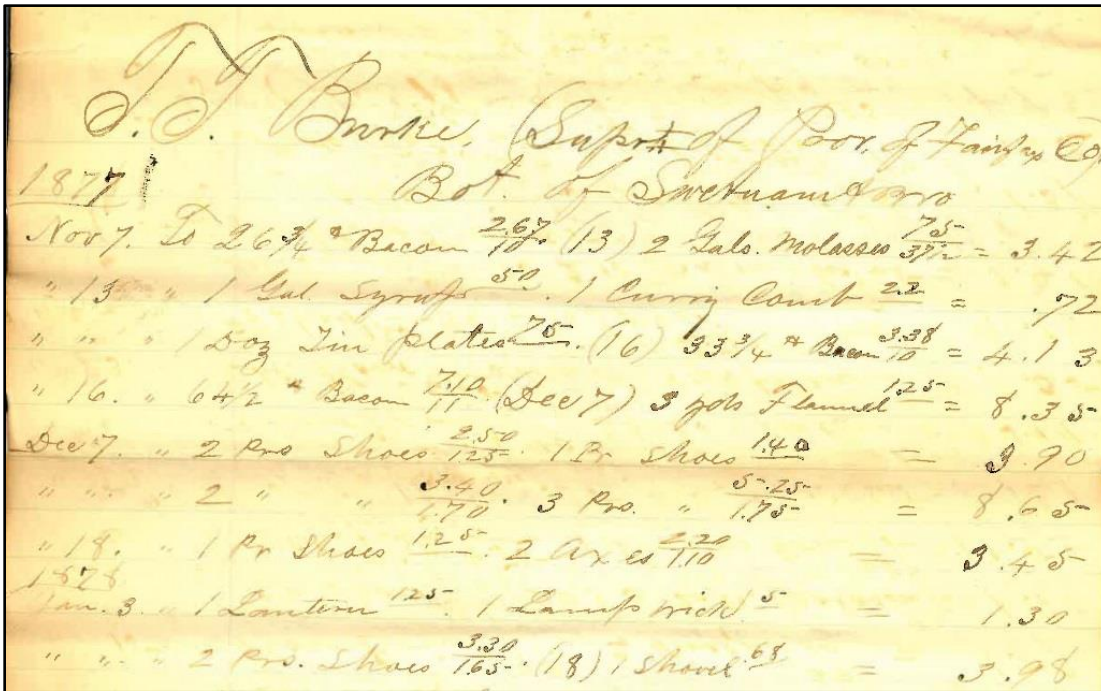 T. T. Burke, (Suprt of Poor, of Fairfax Co)
1877 Bot. of Swetnam & Bro
Nov 7. To 26 3/4 # Bacon 2.67/10 (13) 2 Gals. Molasses 75/37 1/2 = 3.42
" 13 " 1 Gal. Syrup 50. 1 Curry Comb 22 = .72
" " " 1 Doz Tin plates 75. (16) 33 3/4 # Bacon 3.38/10 = 4.13
" 16. " 64 1/2 # Bacon 7.10/11 (Dec 7) 3 yds Flannel 1.25 = 8.35
Dec 7. " 2 Prs Shoes 2.50/1.25. 1 Pr Shoes 1.40 = 3.90
" " " 2 " " 3.40/1.70. 3 Prs. " 5.25/1.75 = 8.65
" 18. " 1 Pr Shoes 1.25. 2 Axes 2.20/1.10 = 3.45
1878
Jan. 3. " 1 Lantern 1.25. 1 Lamp wick 5 = 1.30
" " " 2 Prs. Shoes 3.30/1.65. (18) 1 Shovel 68 = 3.98